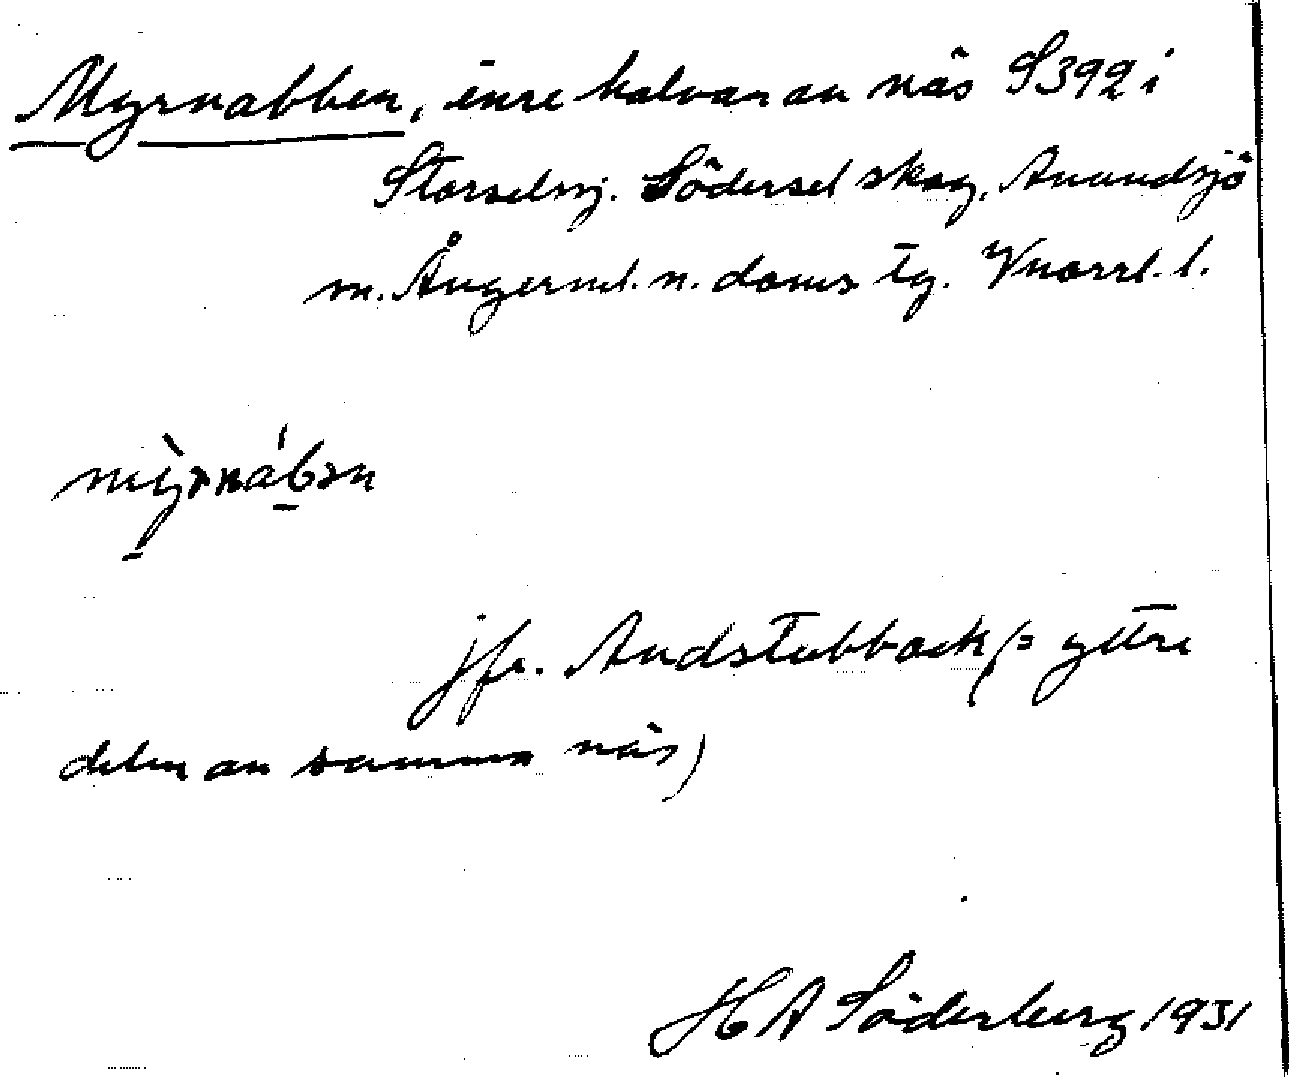 Myrnabben, inre halvan av näs S392 i
Storselsj. Södersel skog, Anundsjö
sn. Ångerml. n. doms tg. Vnorrl. l.
mỳ̠rnáb̠ən
jfr. Andstubback (= yttre
delen av samma näs)
H A Söderberg 1931